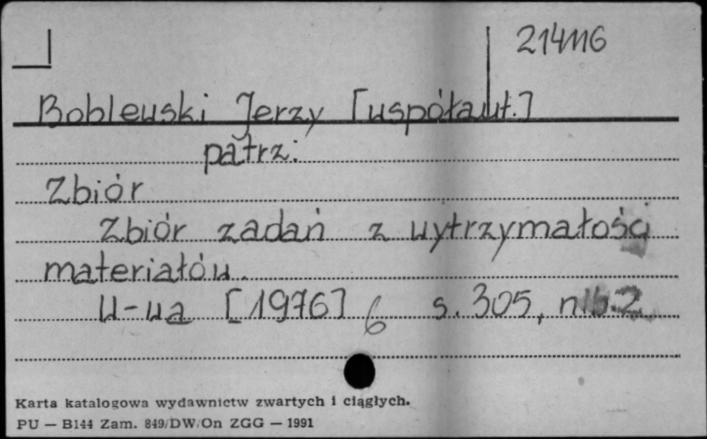 214116
Boblewski Jerzy [współaut.]
patrz:
Zbiór
Zbiór zadań z wytrzymałości
materiałów.
W-wa [1976] 6 s. 305, nlb. 2
Karta katalogowa wydawnictw zwartych i ciągłych.
PU — B144 Zam. 849/DW/On ZGG — 1991